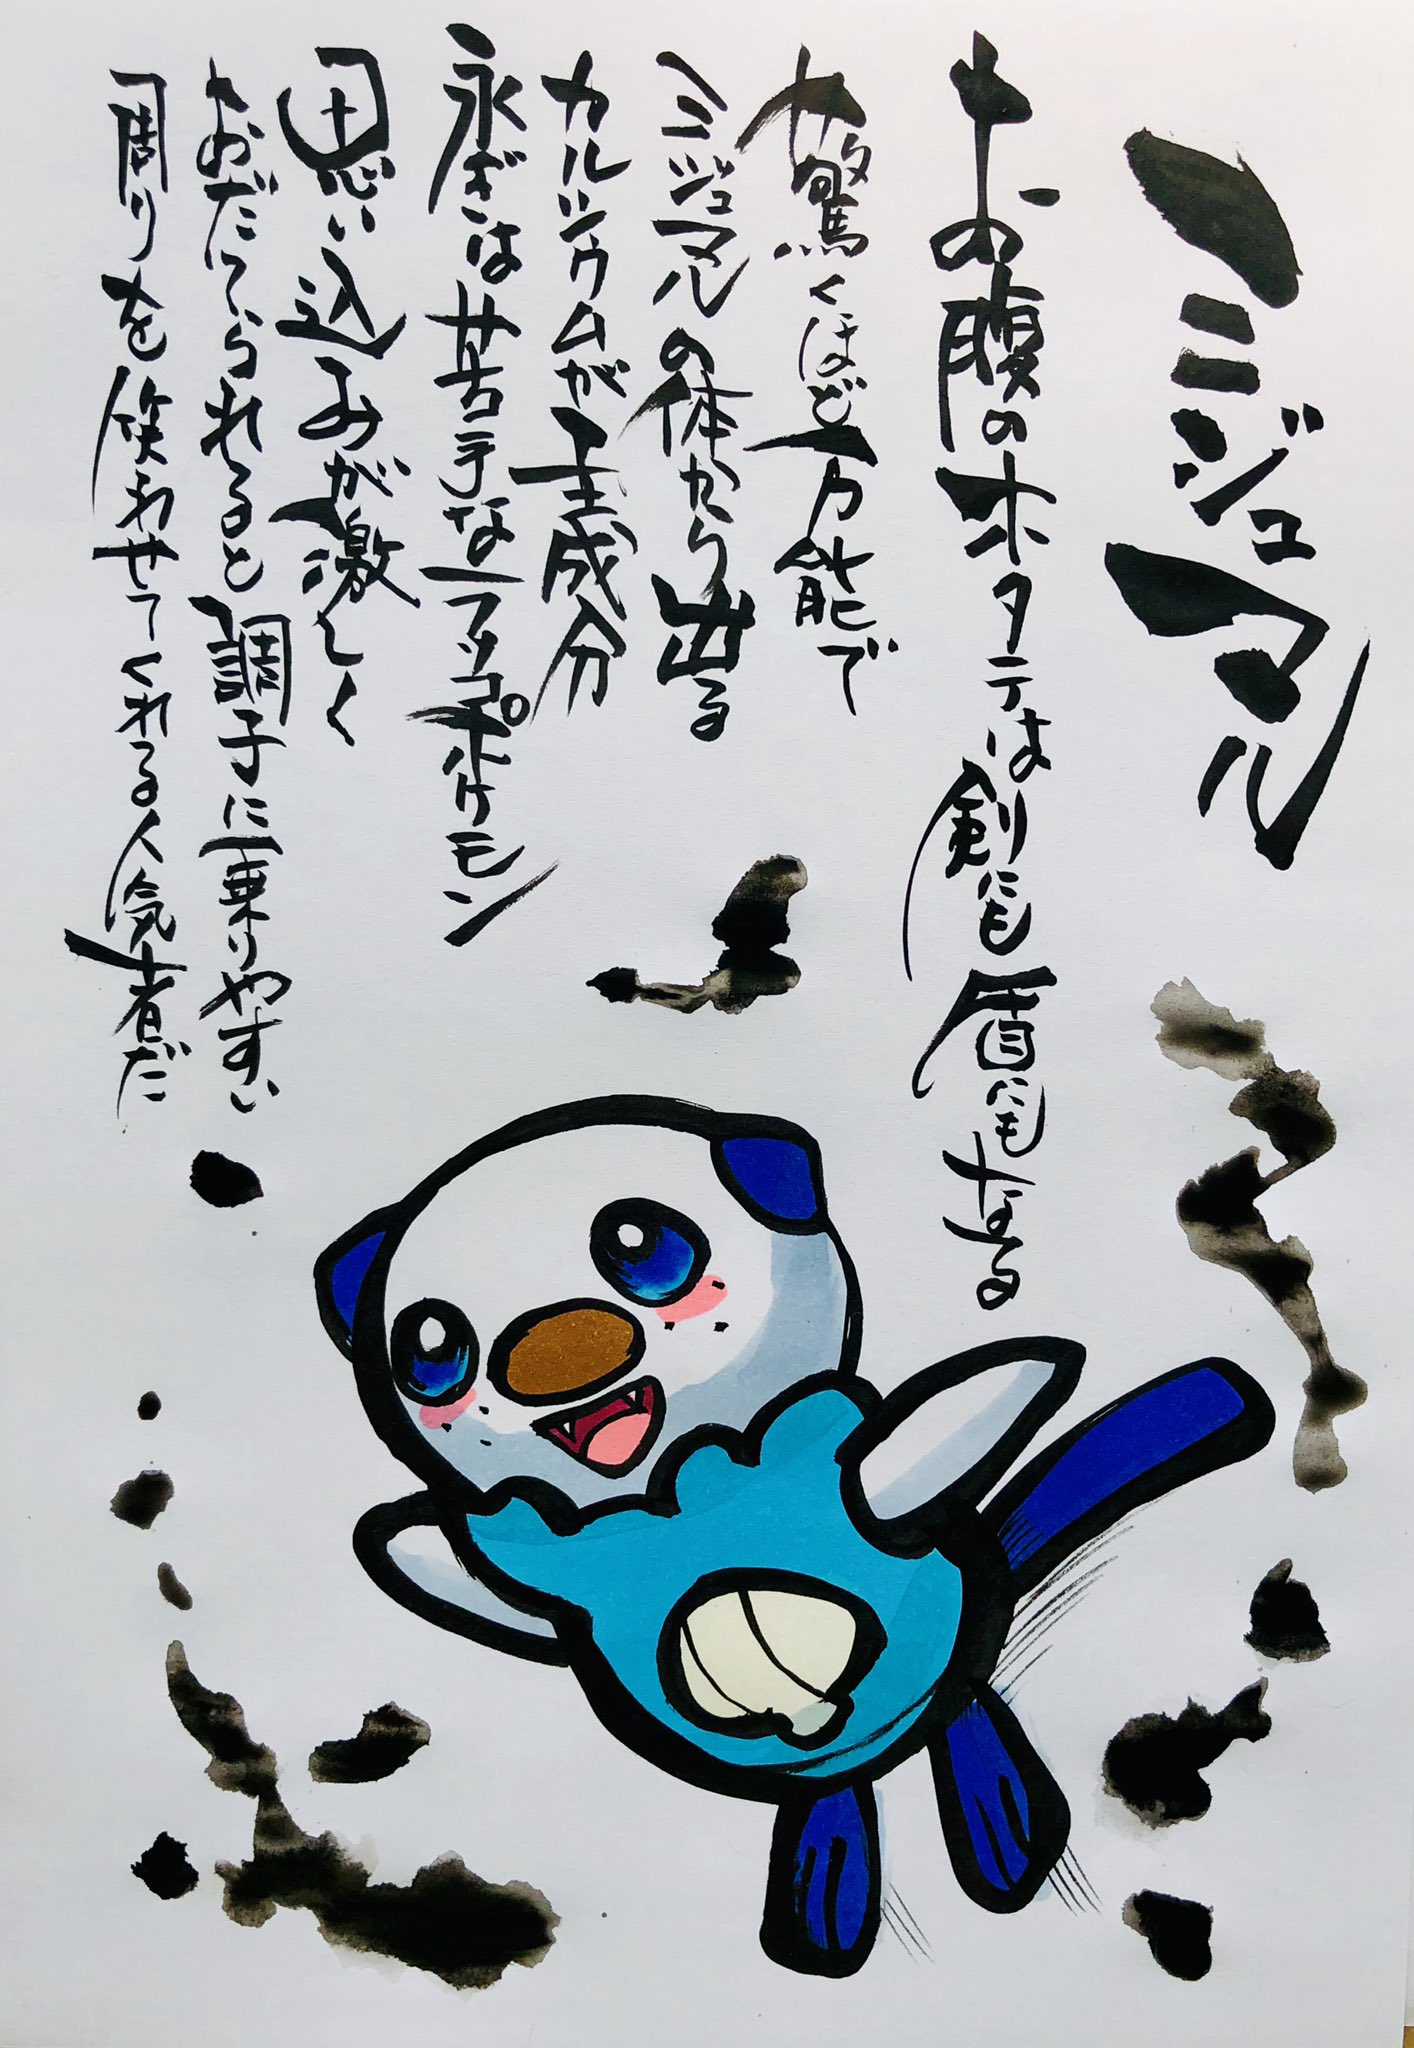 ミジュマル
お腹のホタテは剣にも盾にもなる
驚くほど万能で
ミジュマルの体から出る
カルシウムが主成分
泳ぎは苦手なラッコポケモン
思い込みが激しく
おだてられると調子に乗りやすい
周りを笑わせてくれる人気者だ